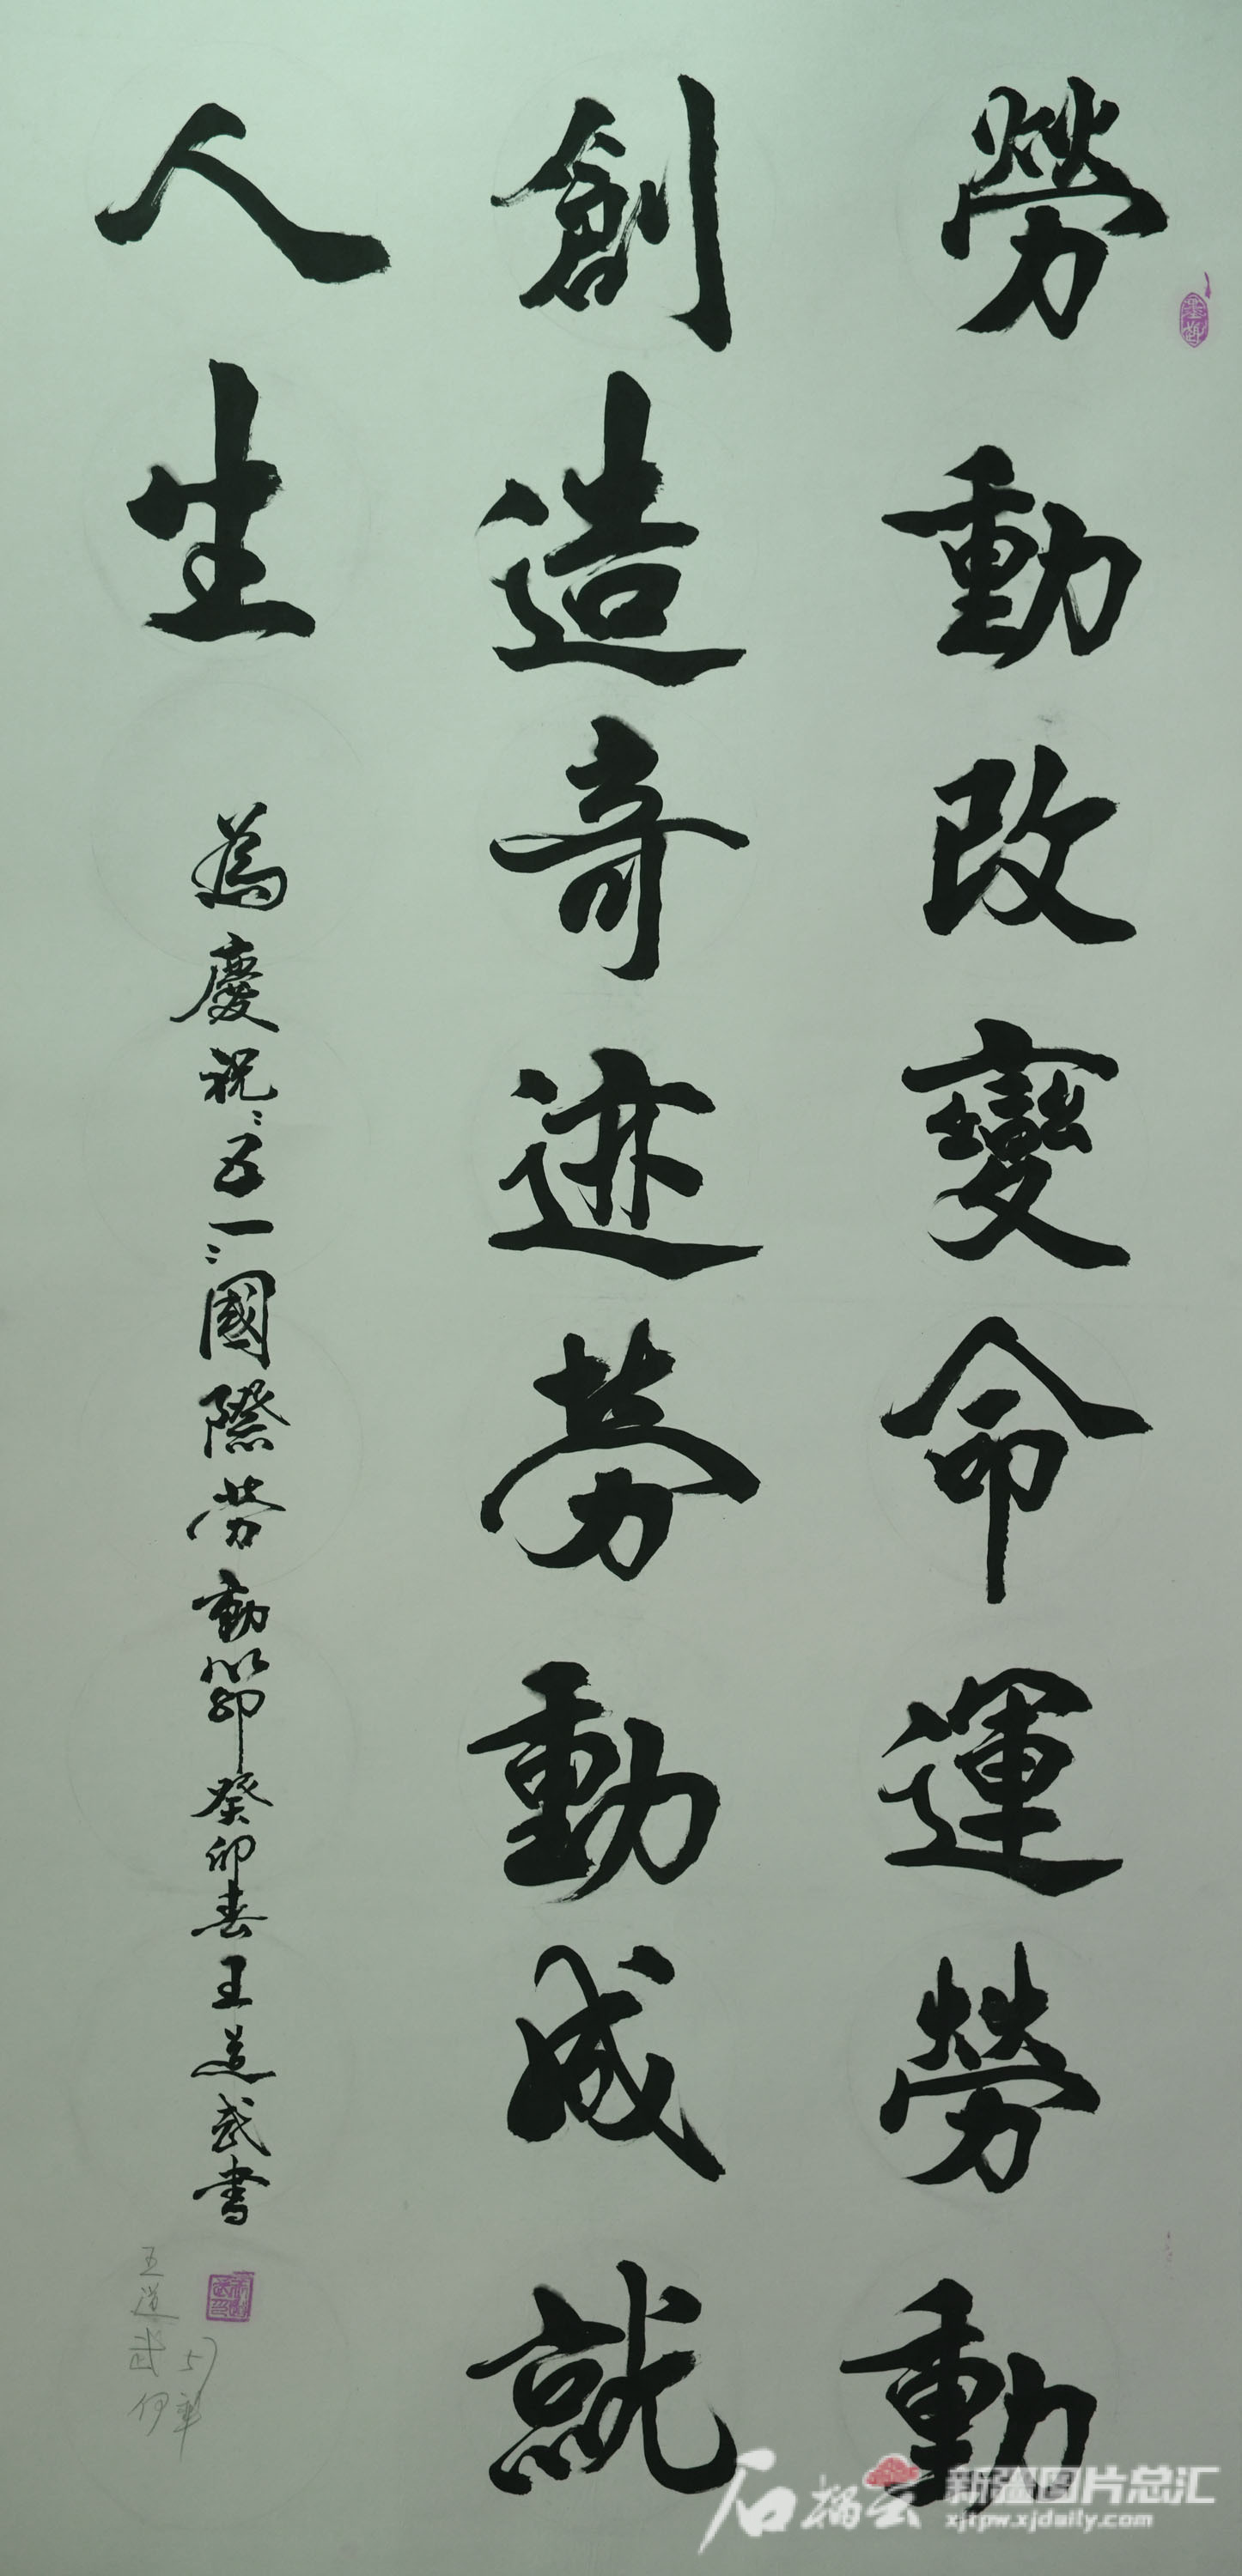 勞動改變命運勞動
創造奇迹劳動成就
人生
為慶祝"五一"國際劳動節癸卯春王道武書
王道武
石榴云
新疆图片总汇
xjtpw.xjdaily.com